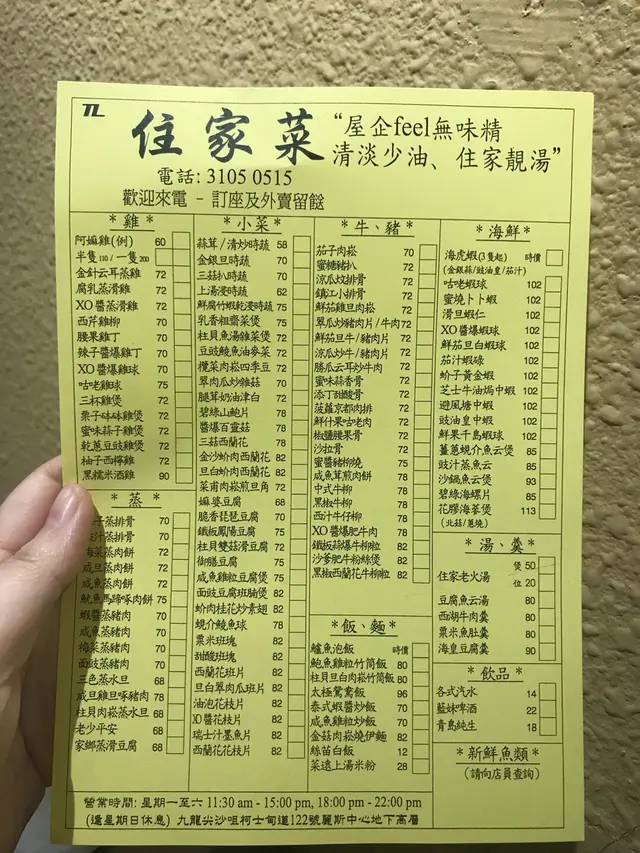 TL
住家菜
“屋企feel無味精
清淡少油、住家靚湯”
電話: 3105 0515
歡迎來電 - 訂座及外賣留餸
*雞*
阿嫲雞(例) 60
半隻110/一隻200
金針云耳蒸雞 72
腐乳蒸滑雞 72
XO醬蒸滑雞 72
西芹雞柳 72
腰果雞丁 70
辣子醬爆雞丁 70
XO醬爆雞球 70
咕咾雞球 75
三杯雞煲 72
栗子砵砵雞煲 72
蜜味蒜子雞煲 72
乾蔥豆豉雞煲 72
柚子西檸雞 72
黑糯米酒雞 90
*蒸*
子蒸排骨 70
汁蒸排骨 70
梅菜蒸肉餅 72
咸旦蒸肉餅 72
咸魚蒸肉餅 72
魷魚馬蹄啄肉餅 75
蝦醬蒸豬肉 70
咸魚蒸豬肉 70
梅菜蒸豬肉 70
面豉蒸豬肉 70
三色蒸水旦 68
咸旦雞旦啄豬肉 78
柱貝肉崧蒸水旦 68
老少平安 68
家鄉蒸滑豆腐 68
*小菜*
蒜茸/清炒時蔬 58
金銀旦時蔬 70
三菇扒時蔬 70
上湯浸時蔬 62
鮮腐竹蝦乾浸時蔬 75
乳香粗齋菜煲 75
柱貝魚湯雜菜煲 72
豆豉鯪魚油麥菜 72
欖菜肉崧四季豆 72
翠肉瓜炒雜菇 70
腿茸奶油津白 72
碧綠山鮑片 78
醬爆百靈菇 78
三菇西蘭花 78
金沙蚧肉西蘭花 82
旦白蚧肉西蘭花 82
菜甫肉崧煎旦角 72
嫲婆豆腐 68
脆香琵琶豆腐 70
鐵板鳳陽豆腐 75
柱貝雙菇滑豆腐 72
御膳豆腐 75
咸魚雞粒豆腐煲 75
面豉豆腐班腩煲 82
蚧肉桂花炒素翅 82
蜆介鯪魚球 78
粟米班塊 82
甜酸班塊 82
西蘭花班片 82
旦白翠肉瓜班片 82
油泡花枝片 82
XO醬花枝片 82
瑞士汁墨魚片 82
西蘭花花枝片 82
*牛、豬*
茄子肉崧 70
蜜糖豬扒 72
涼瓜炆排骨 72
鎮江小排骨 72
鮮茄雞旦肉崧 72
翠瓜炒豬肉片/牛肉 72
鮮茄旦牛/豬肉片 72
涼瓜炒牛/豬肉片 72
勝瓜云耳炒牛肉 72
蜜味蒜香骨 72
添丁甜酸骨 72
菠蘿京都肉排 72
鮮什果咕老肉 72
椒鹽腰果骨 72
沙拉骨 72
蜜醬豬柳燒 75
咸魚茸煎肉餅 78
中式牛柳 78
黑椒牛柳 78
西汁牛仔柳 78
XO醬爆肥牛肉 78
鐵板蒜爆牛柳粒 82
沙爹肥牛粉絲煲 82
黑椒西蘭花牛柳粒 82
*飯、麵*
鱸魚泡飯 時價
鮑魚雞粒竹筒飯 80
柱貝旦白崧肉竹筒飯 80
太極鴛鴦飯 96
泰式蝦醬炒飯 70
咸魚雞粒炒飯 70
金菇肉崧燒伊麵 82
絲苗白飯 12
菜遠上湯米粉 28
*海鮮*
海虎蝦(3隻起) 時價
(金銀蒜/豉油皇/茄汁)
咕咾蝦球 102
蜜燒卜卜蝦 102
滑旦蝦仁 102
XO醬爆蝦球 102
鮮茄旦白蝦球 102
茄汁蝦碌 102
蚧子黃金蝦 102
芝士牛油焗中蝦 102
避風塘中蝦 102
豉油皇中蝦 102
鮮果千島蝦球 102
薑蔥蜆介魚云煲 85
豉汁蒸魚云 85
沙鍋魚云煲 93
碧綠海螺片 85
花膠海蔘煲 113
(北菇/蔥燒)
*湯、羹*
住家老火湯 煲50
位20
豆腐魚云湯 80
西湖牛肉羹 80
粟米魚肚羹 80
海皇豆腐羹 90
*飲品*
各式汽水 14
藍妹啤酒 22
青島純生 18
*新鮮魚類*
(請向店員查詢)
營業時間: 星期一至六 11:30 am - 15:00 pm, 18:00 pm - 22:00 pm
(逢星期日休息) 九龍尖沙咀柯士甸道122號麗斯中心地下高層